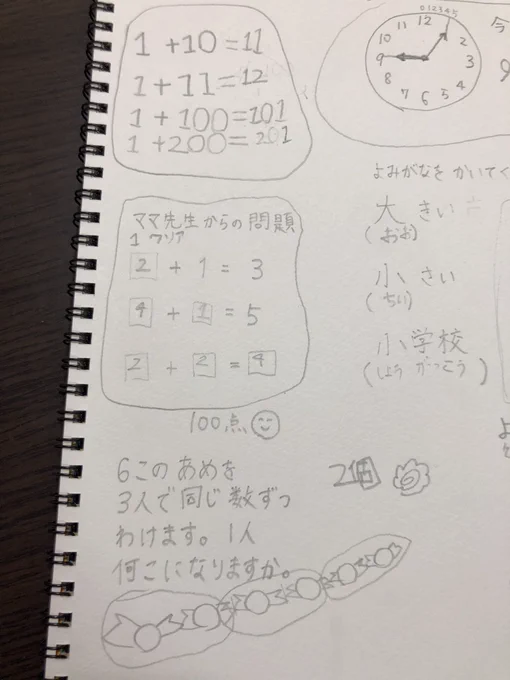 1 + 10 = 11
1 + 11 = 12
1 + 100 = 101
1 + 200 = 201
0 1 2 3 4 5
12
11
10
9
8
7
6
5
4
3
2
今
9
よみがなを かいてく
大きい
(おお)
小さい
(ちい)
小学校
(しょう がっこう)
ママ先生からの問題
1 クリア
2 + 1 = 3
4 + 1 = 5
2 + 2 = 4
100点
6このあめを
3人で同じ数ずつ
わけます。1人
何こになりますか。
2個
よ